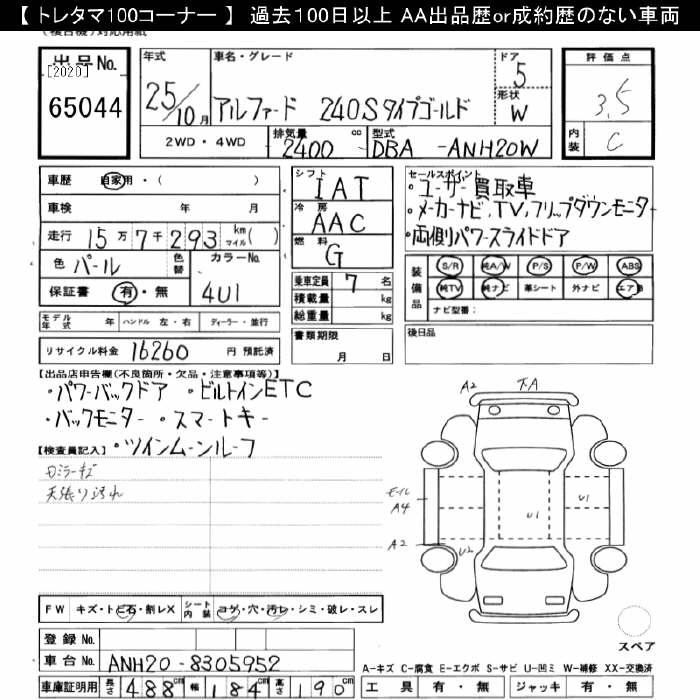 【 トレタマ100コーナー 】 過去100日以上 AA出品歴or成約歴のない車両
出品No. [2020] 65044
年式 25/10月
車名・グレード アルファード 240Sタイプゴールド
ドア 5
形状 W
評価点 3.5
内装 C
2WD・4WD
排気量 2400 cc
型式 DBA -ANH20W
車歴 自家用・( )
車検 年 月
走行 15万7千293 km マイル( )
色 パール 色替 カラーNo. 4U1
保証書 有・無
シフト IAT
冷房 AAC
燃料 G
乗車定員 7名
積載量 kg
総重量 kg
書類期限 月 日
セールスポイント
・ユーザー買取車
・メーカーナビ、TV、フリップダウンモニター
・両側パワースライドドア
装備品 S/R 純A/W P/S P/W ABS
純TV 純ナビ 革シート 外ナビ エアB
ナビ型番:
後日品
モデル年式 年 ハンドル 左・右 ディーラー・並行
リサイクル料金 16260 円 預託済
【出品店申告欄(不良箇所・欠品・注意事項等)】
・パワーバックドア ・ビルトインETC
・バックモニター ・スマートキー
【検査員記入】・ツインムーンルーフ
天張り汚れ
A2 下A
モール A4
A2 U2 U1 U1
FW キズ・トビ石・割レX シート内装 コゲ・穴・汚レ・シミ・破レ・スレ
登録No.
車台No. ANH20-8305952
スペア
A-キズ C-腐食 E-エクボ S-サビ U-凹ミ W-補修 XX-交換済
車庫証明用 長さ 488cm 幅 184cm 高さ 190cm
工具 有・無 ジャッキ 有・無